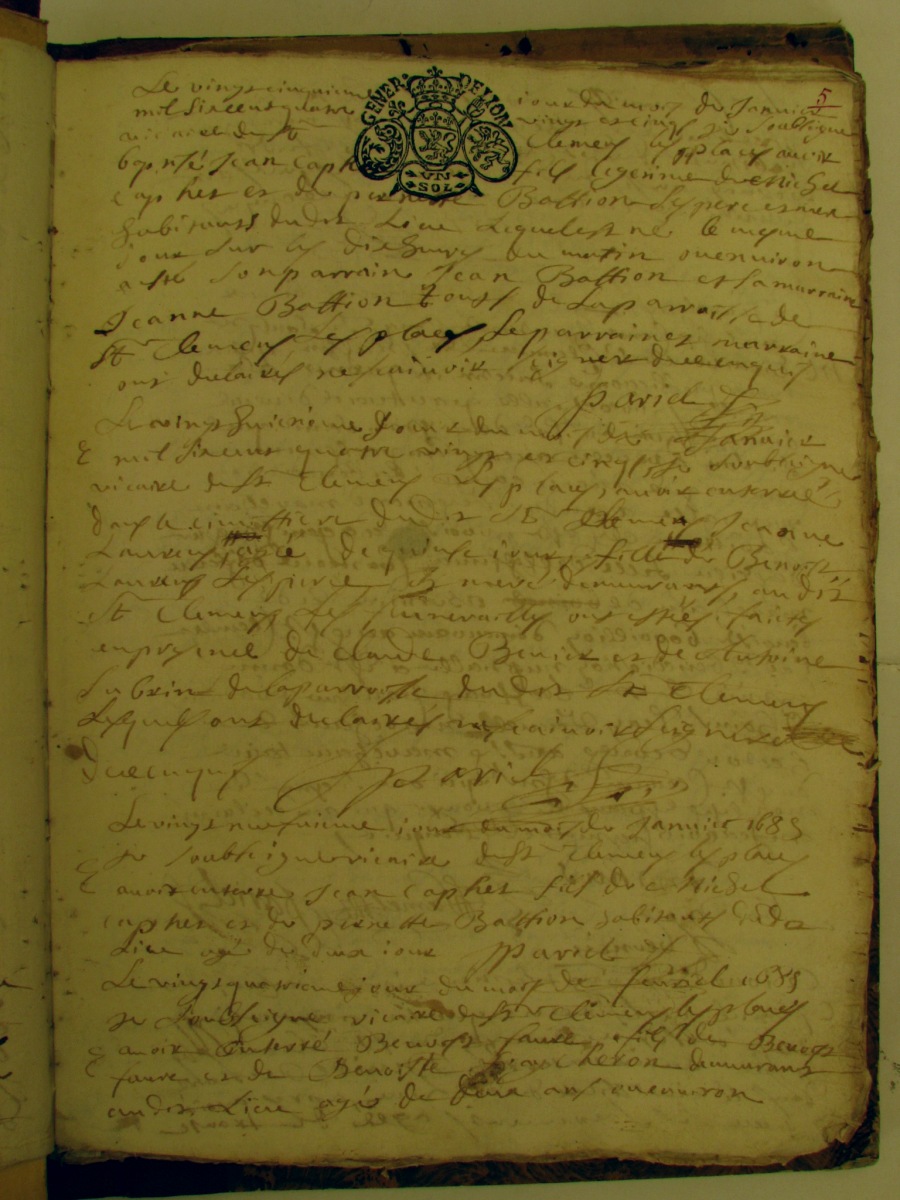 5
GENER. DE LYON
VN SOL
Le vingt cinquiesme jour du mois de Janvier
mil six cent quatre vingt et cinq je soubsigné
vicaire de St Clement les places avoir
baptisé Jean Caphet fils legitime de Michel
Caphet et de pierrette Battion ses pere et mere
habitants dudit Lieu Lequel est né le mesme
jour sur les dix heures du matin ou environ
a esté son parrain Jean Battion et sa marraine
Jeanne Battion tous de la parroisse de
St Clement les places Le parrain et marraine
ont declarés ne sçavoir signer de ce enquis
Parid
Le vingt huictiesme Jour du mois de Janvier
mil six cent quatre vingt et cinq je soubsigné
vicaire de St Clement les places avoir enterré
dans le cimittiere dudit St Clement Jeanne
Laurent de quinse jours fille de Benoist
Laurent demeurants audit
St Clement Les funerailles ont estées faictes
en presence de Claude et de Antoine
de la parroisse dudit St Clement
Lesquels ont declairés ne sçavoir signer
de ce enquis Parid
Le vingt neufvieme jour du mois de Janvier 1685
je soubsigné vicaire de St Clement les places
avoir enterré Jean Caphet fils de Michel
Caphet et de pierrette Battion habitants dudit
Lieu agé de deux jour Parid
Le vingt quatrieme jour du mois de 1685
je soubsigné vicaire de St Clement les places
avoir enterré Benoist faure fils de Benoist
faure et de Benoiste demeurant
audit Lieu agés de deux ans ou environ